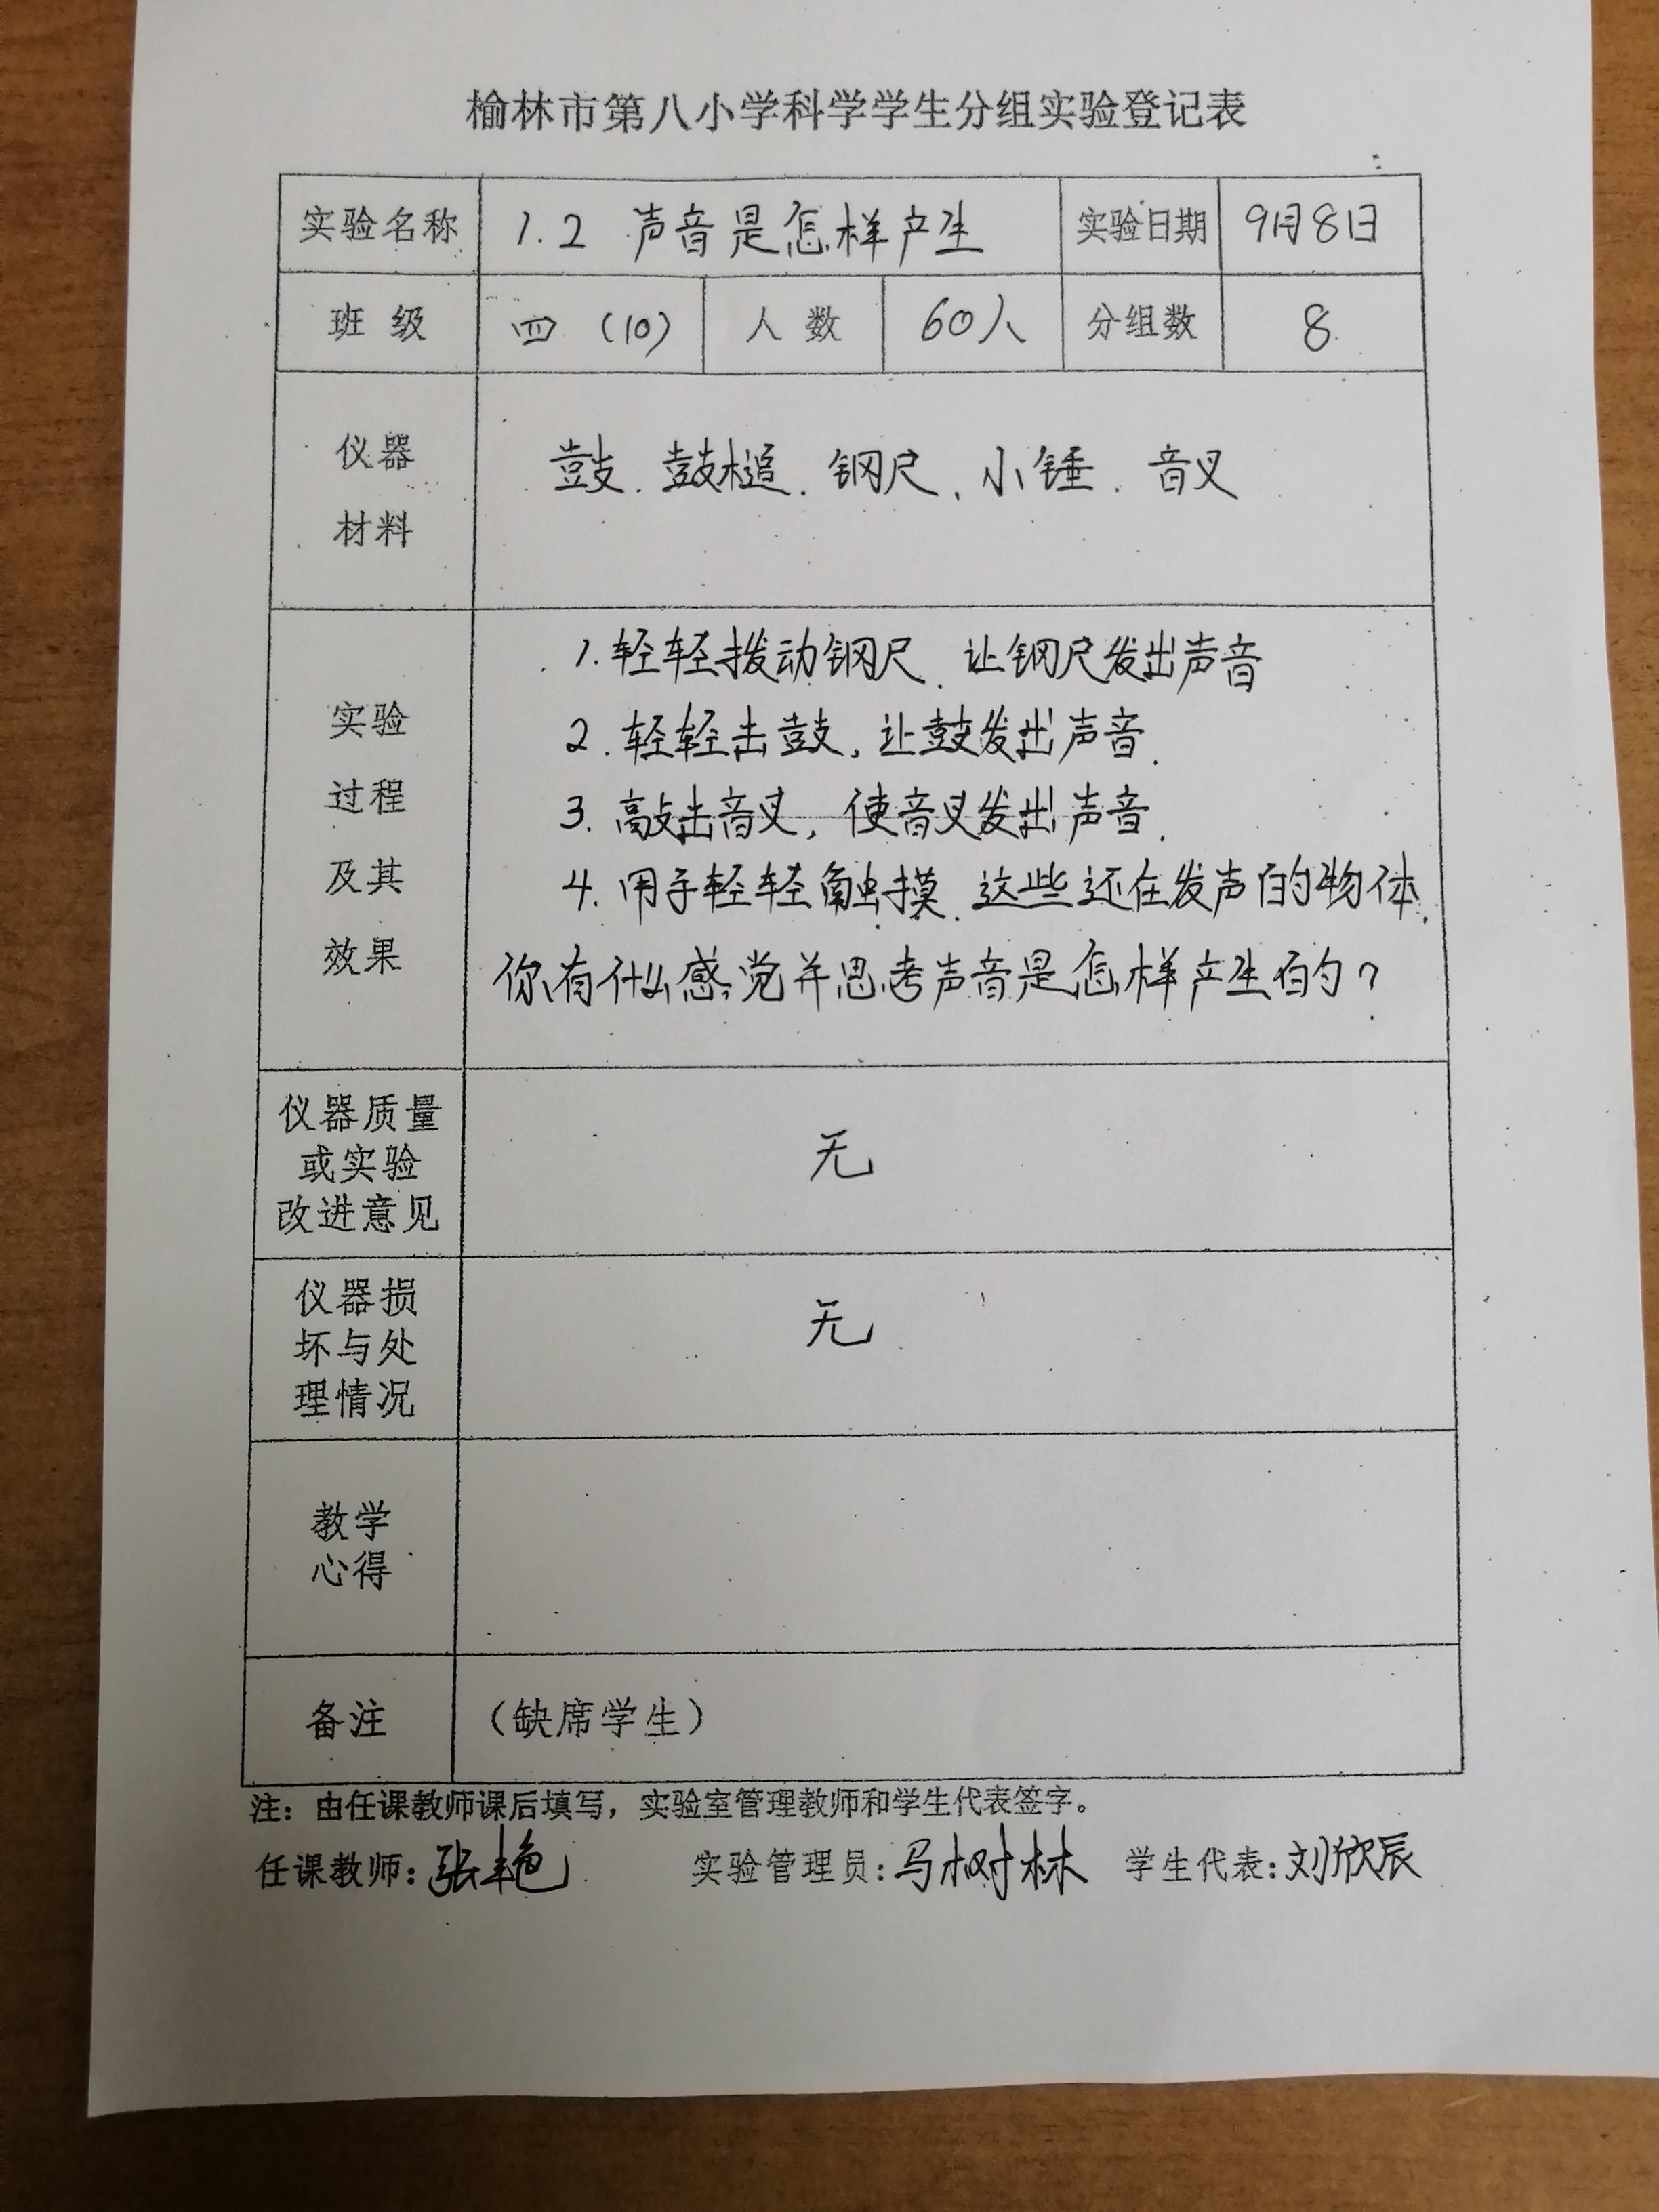 榆林市第八小学科学学生分组实验登记表
实验名称 1.2 声音是怎样产生 实验日期 9月8日
班 级 四 (10) 人 数 60人 分组数 8
仪器
材料
鼓、鼓槌、钢尺、小锤、音叉
实验
过程
及其
效果
1.轻轻拨动钢尺、让钢尺发出声音
2.轻轻击鼓,让鼓发出声音.
3.敲击音叉,使音叉发出声音.
4.用手轻轻触摸.这些还在发声的物体.
你有什么感觉并思考声音是怎样产生的?
仪器质量
或实验
改进意见
无
仪器损
坏与处
理情况
无
教学
心得
备注 (缺席学生)
注：由任课教师课后填写，实验室管理教师和学生代表签字。
任课教师：张艳 实验管理员：马树林 学生代表：刘欣辰